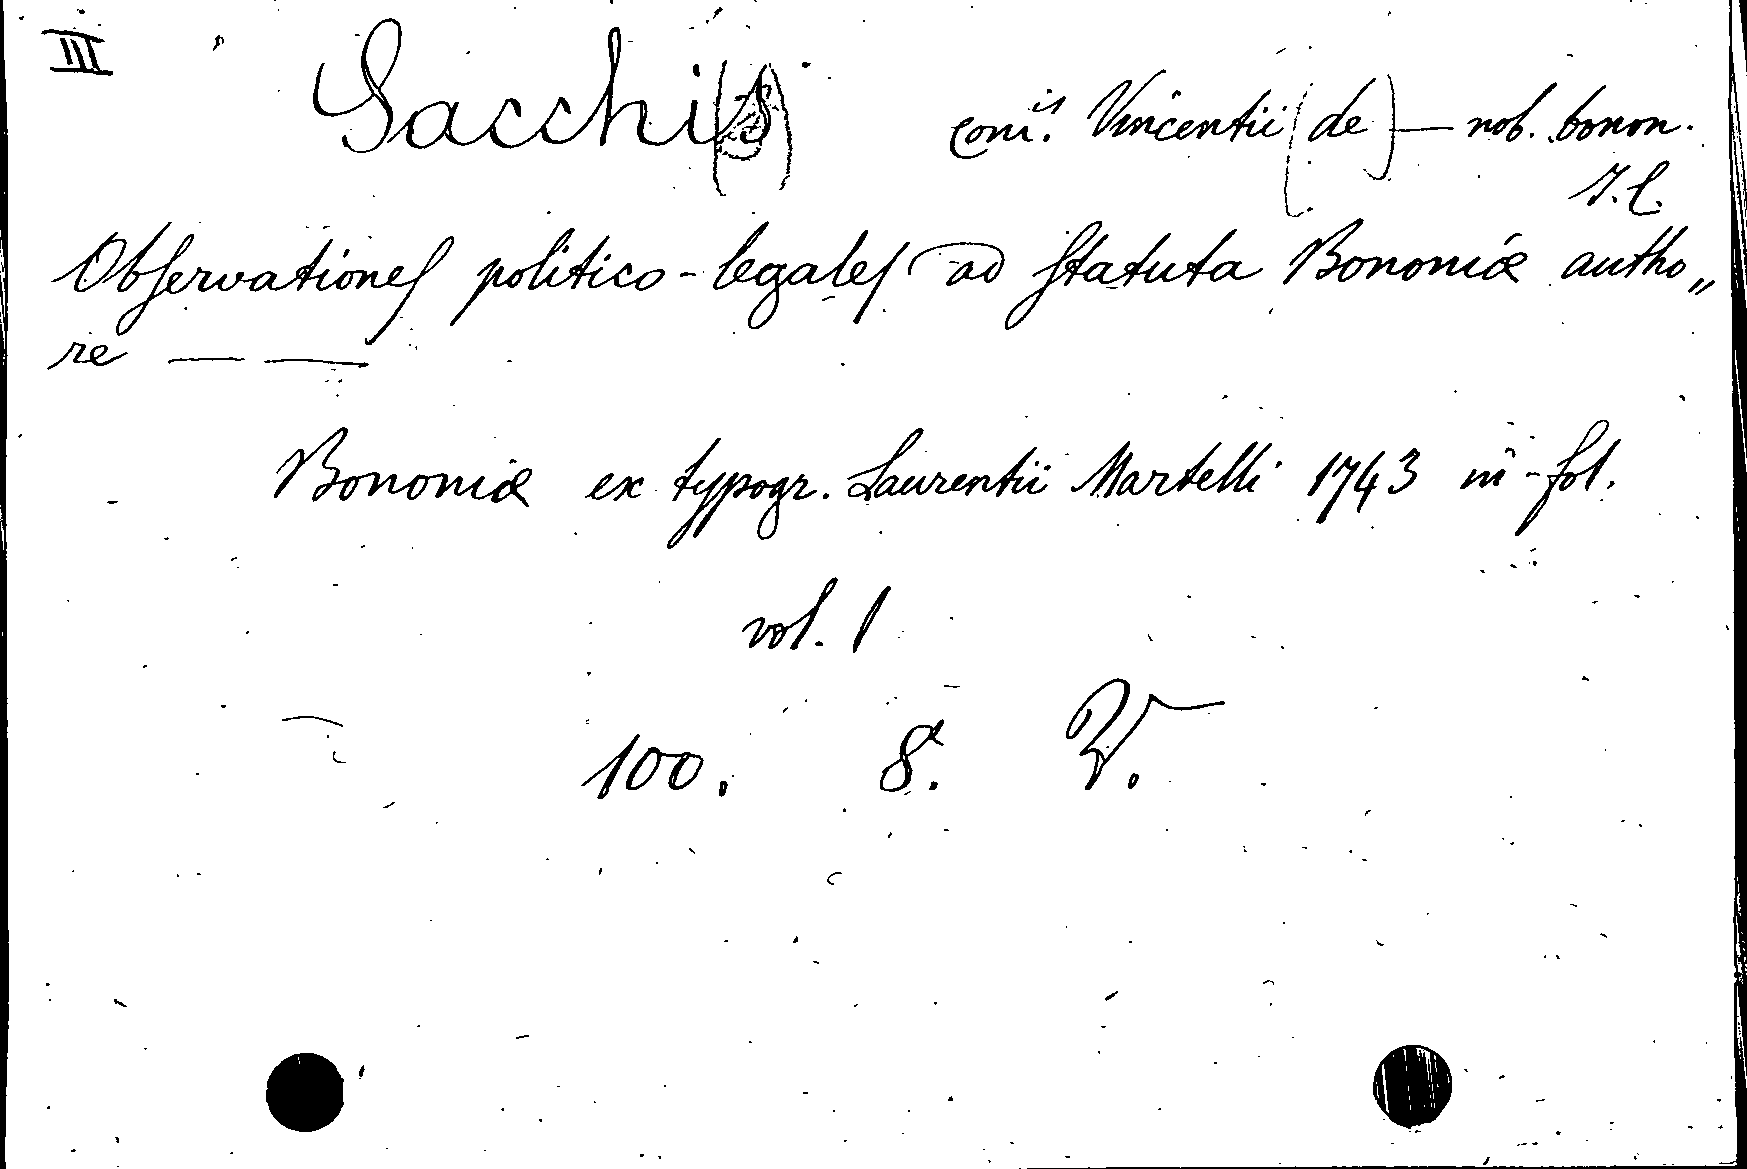 III Sacchi(s) com.is Vincentii (de) — nob. bonon.
I. C.
Obſervationeſ politico-legaleſ ad ſtatuta Bononiæ autho„
re — —
Bononiæ ex typogr. Laurentii Martelli 1743 in-fol.
vol. 1
100. 8. V.